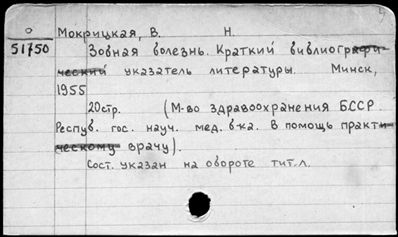 О Мокрицкая, В. Н.
51750 Зобная болезнь. Краткий библиографи-
ческий указатель литературы. Минск,
1955
20стр. (М-во здравоохранения БССР.
Респуб. гос. науч. мед. б-ка. В помощь практи-
ческому врачу).
Сост. указан на обороте тит. л.